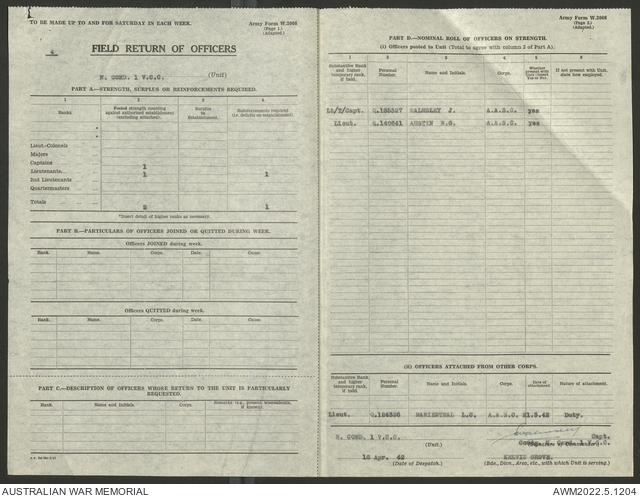 TO BE MADE UP TO AND FOR SATURDAY IN EACH WEEK.
Army Form W.3008
(Page 1.)
(Adapted.)
4
FIELD RETURN OF OFFICERS
N. COMD. 1 V.C.C. (Unit)
PART A.—STRENGTH, SURPLUS OR REINFORCEMENTS REQUIRED.
1 2 3 4
Ranks. Posted strength counting against authorised establishment (excluding attached). Surplus to Establishment. Reinforcements required (i.e. deficits on establishment).
Lieut.-Colonels
Majors
Captains 1
Lieutenants 1 1
2nd Lieutenants
Quartermasters
Totals 2 1
*Insert detail of higher ranks as necessary.
PART B.—PARTICULARS OF OFFICERS JOINED OR QUITTED DURING WEEK.
Officers JOINED during week.
Rank. Name. Corps. Date. Cause.
Officers QUITTED during week.
Rank. Name. Corps. Date. Cause.
PART C.—DESCRIPTION OF OFFICERS WHOSE RETURN TO THE UNIT IS PARTICULARLY REQUESTED.
Rank. Name and Initials. Corps. Remarks (e.g., present whereabouts, if known).
Army Form W.3008
(Page 2.)
(Adapted.)
PART D.—NOMINAL ROLL OF OFFICERS ON STRENGTH.
(i) Officers posted to Unit (Total to agree with column 2 of Part A).
1 2 3 4 5 6
Substantive Rank and higher temporary rank, if held. Personal Number. Name and Initials. Corps. Whether present with Unit (insert Yes or No). If not present with Unit, state how employed.
Lt/T/Capt. Q.185327 WALMSLEY J. A.A.S.C. yes
Lieut. Q.140641 AUSTIN R.G. A.A.S.C. yes
(ii) OFFICERS ATTACHED FROM OTHER CORPS.
Substantive Rank and higher temporary rank, if held. Personal Number. Name and Initials. Corps. Date of attachment. Nature of attachment.
Lieut. Q.124326 MARIENTHAL L.C. A.A.S.C. 21.3.42 Duty.
N. COMD. 1 V.C.C. (Unit.) Capt.
(Signature of Commander.)
18 Apr. 42 KELVIN GROVE.
(Date of Despatch.) (Bde., Divn., Area, etc., with which Unit is serving.)
AUSTRALIAN WAR MEMORIAL
AWM2022.5.1204